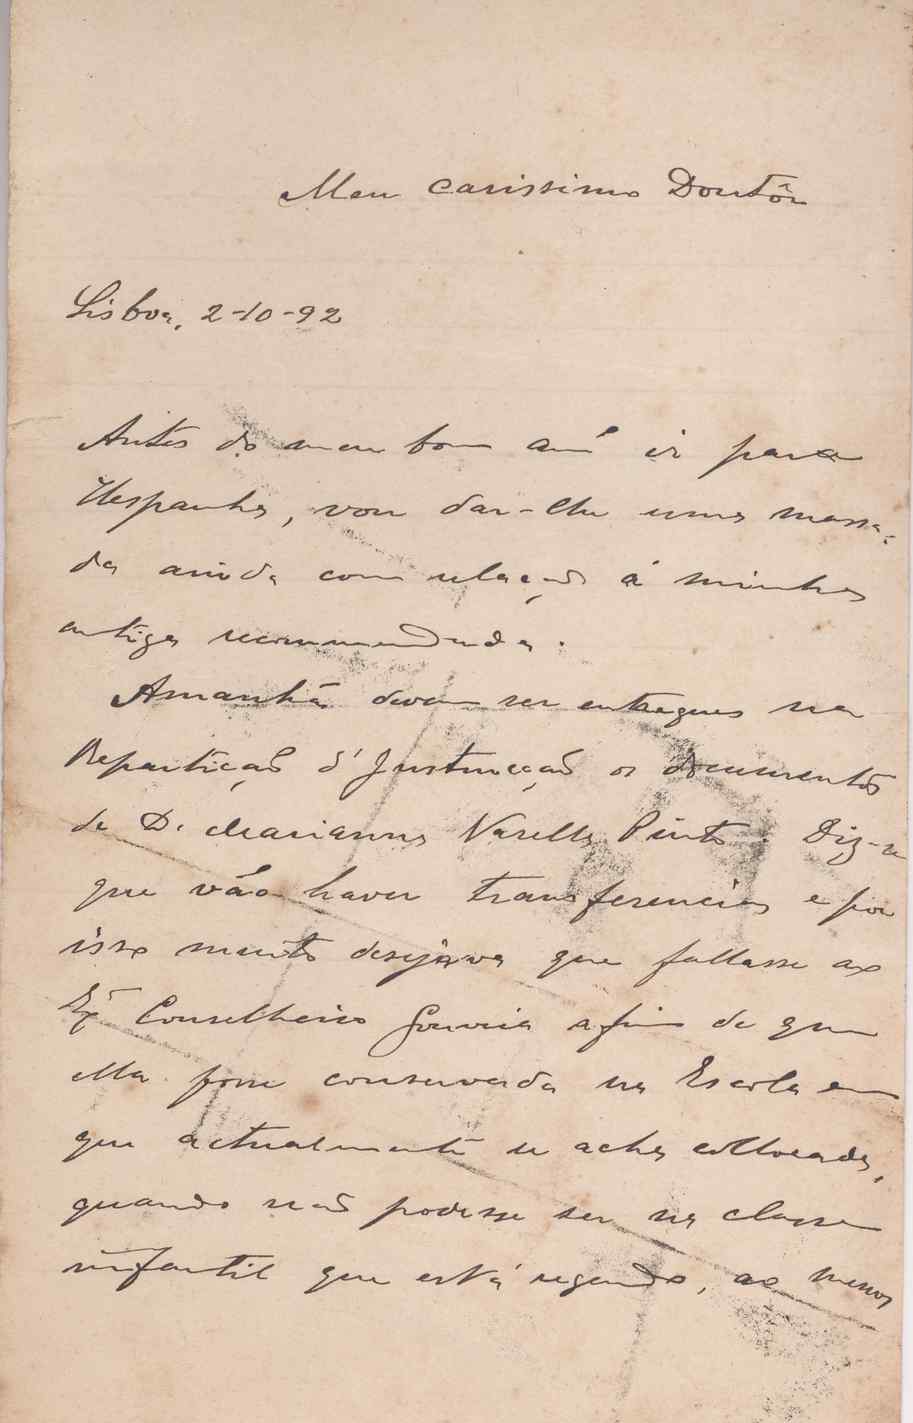 Meu carissimo Doutôr
Lisboa, 2-10-92
Antes do meu bom amº ir para
Hespanha, vou dar-lhe uma massa-
da ainda com relação á minha
antiga recommendada.
Amanhã devem ser entregues na
Repartição d'Instrucção os documentos
de D. Marianna Varella Pinto. Diz-se
que vão haver transferencias e por
isso muito desejava que fallasse ao
Exº Conselheiro Gouveia afim de que
ella fosse conservada na Escola em
que actualmente se acha collocada,
quando não podesse ser na classe
infantil que está regendo, ao menos